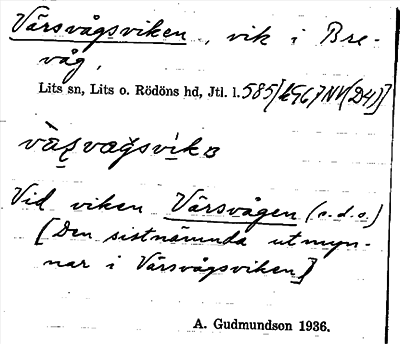 Vårsvågsviken, vik i Bre-
våg,
Lits sn, Lits o. Rödöns hd, Jtl. l. 585
Vid viken Vårsvågen (s.d.o.)
[Den sistnämnda utmyn-
nar i Vårsvågsviken]
A. Gudmundson 1936.